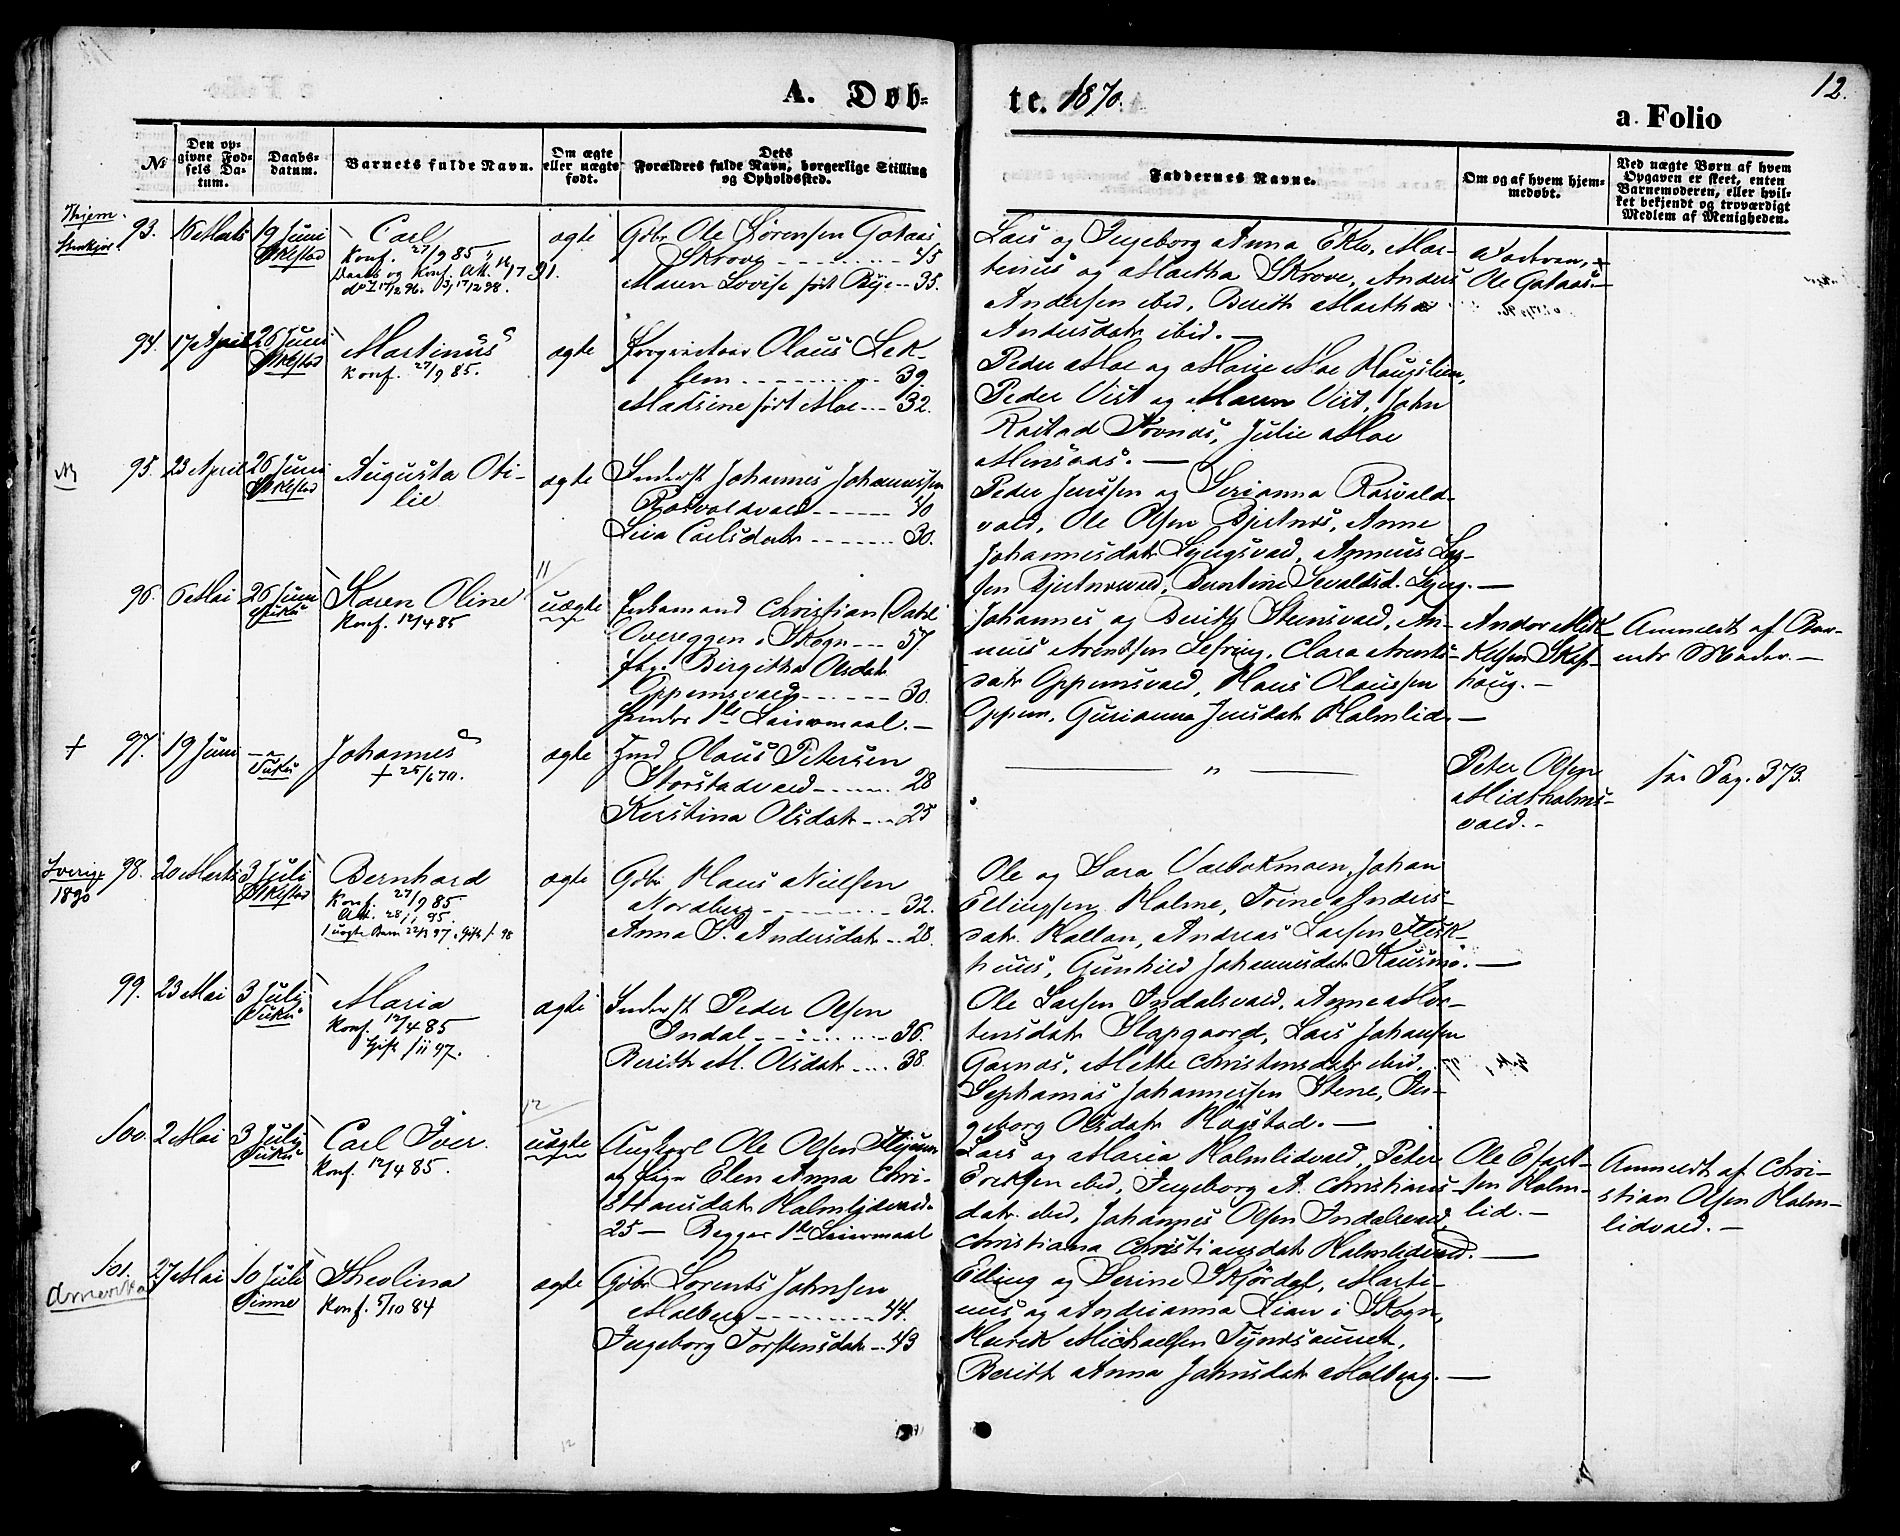 A. Døb-
te. 1870.
12.
a Folio
No
Den op-
givne Fød-
sels Da-
tum.
Daabs-
datum.
Barnets fulde Navn.
Om ægte
eller uægte
født.
Dets
Forældres fulde Navn, borgerlige Stilling
og Opholdssted.
Faddernes Navne.
Om og af hvem hjem-
medøbt.
Ved uægte Børn af hvem
Opgaven er skeet, enten
Barnemoderen, eller hvil-
ket bekjendt og troværdigt
Medlem af Menigheden.
93. 16 Marts 19 Juni
Carl
Konf. 27/9 85
Daabs og Konf. Att.
ægte
Gbr. Ole Sørensen Gotaas
Skrove 45
Maren Lovise født Bye 35.
Lars og Ingeborg Anna Eklo, Mar-
tinus og Martha Skrove, Anders
Andersen ibid, Berith Martha
Andersdatr ibid.
Ole Gotaas.
94. 17 April 26 Juni
Martinus
Konf. 27/9 85.
ægte
Olaus Lek-
lem 39.
Madsine født Moe 32.
Peder Moe og Marie Moe Haugslien,
Peder Vist og Maren Vist, John
Rostad Tronæs, Julie Moe
Minsaas.
95. 23 April 26 Juni
Augusta Oti-
lie
ægte
Inderst Johannes Johannessen
Rosvoldvald 40
Lina Carlsdatr 30.
Peder Jenssen og Serianna Rosvold-
vald, Ole Olsen Bjertnæs, Anne
Johannesdatr Lyngsvald,
96. 6 Mai 26 Juni
Karen Oline
Konf. 12/4 85
11
uægte
Enkemand Christian Dahl
Overeggen i Skogn 57
Pige Birgitha Olsdatr
Oppemsvald 30.
Johannes og Berith Steinsvald, An-
Clara Arents-
datr Oppemsvald, Hans Olaussen
Oppem, Gurianna Jensdatr Holmlid
Andor Mik-
kelsen Skjes-
haug.
Anmeldt af Bar-
nets Moder.
+ 97. 19 Juni
Johannes
+ 25/6 70.
ægte
Hmd Olaus Petersen
Storstadvald 28
Kirstina Olsdatr 25
"
Peter Olsen
Midtholms-
vald.
see Pag. 373.
Sverige
1890
98. 20 Marts 3 Juli
Bernhard
Konf. 27/9 85
ægte
Gbr Hans Nielsen
Nordberg 32.
Anna S. Andersdatr 28.
Ole og Sara Valbekmoen, Johan
Ellingsen Holme, Trine Anders-
datr Hallan, Andreas Larsen Flesk-
huus, Gunhild Johannesdatr Kausmo.
99. 23 Mai 3 July
Maria
Konf. 12/4 85
Gift f 11 97.
ægte
Inderst Peder Olsen
Indal 36.
Berith M. Olsdatr 38.
Ole Larsen Indalsvald, Anne Mor-
tensdatr Slapgaard, Lars Johansen
Garnæs, Mette Christensdatr ibid,
Sephanias Johannessen Stene, In-
geborg Olsdatr Kogstad.
100. 2 Mai 3 July
Carl Iver.
Konf. 12/4 85.
12
uægte
Ungkarl Ole Olsen
og Pige Elen Anna Chri-
stiansdatr Holmlidvald.
25 — Begges 1ste Leiermaal
Lars og Maria Holmlidvald, Peter
Eriksen ibid, Ingeborg A. Christians-
datr ibid, Johannes Olsen Indalsvald,
Christiana Christiansdatr Holmlidvald.
Ole Efart-
sen Holm-
lid.
Anmeldt af Chri-
stian Olsen Holm-
lidvald.
Amerika
101. 27 Mai 10 Juli
Vinne
Theolina
Konf. 5/10 84
ægte
Gbr Lorents Johnsen
Molberg 44.
Ingeborg Torstensdatr 43
Elling og Serine Skjørdal, Marti-
nus og Andrianna Lian i Skogn,
Henrik Michaelsen Tyndsaunet,
Berith Anna Johnsdatr Molberg.